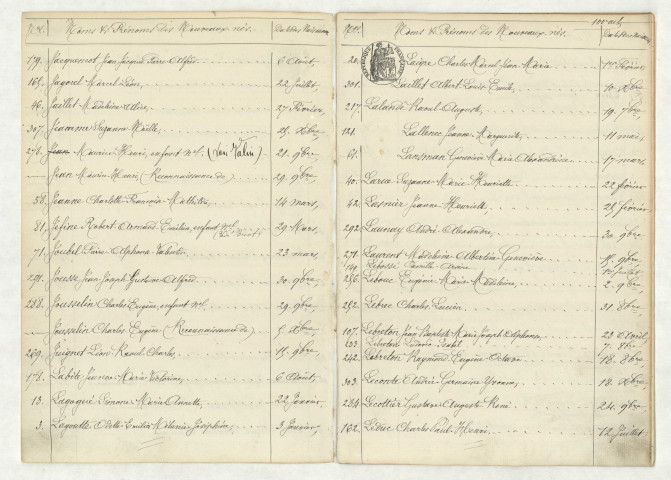 Nos. Noms & Prénoms des Nouveaux nés. Dates des Naissances
179. Jacquemet Jean Jacques Pierre Alfred 6 Août,
165. Jagorel Marcel Léon, 22 Juillet,
46. Jaillet Madeleine Alice, 27 Février,
307. Jeamme Suzanne Maëlle 25. Xbre,
278. Maurice Henri, enfant nel. (Non Valin) 21. 9bre,
— Jean Maurice Henri, (Reconnaissance de) 29. 9bre,
58. Jeanne Charlotte Françoise Mathilde, 14 mars,
81. Jéfine Robert Armand Emilien, enfant nel. 29 Mars,
71. Joubel Pierre Alphonse Valentin, 23 mars,
291. Jousse Jean Joseph Gustave Alfred, 30. 9bre,
288. Jousselin Charles Eugène, enfant nel. 29. 9bre,
— Jousselin Charles Eugène (Reconnaissance de) 5 Xbre,
269. Juignet Léon Raoul Charles, 15. 9bre,
178. Labité Jeanne Marie Victorine, 6 Août,
13. Lagogué Simonne Marie Annette, 22 Janvier,
3. Lagoutte Odette Emilie Mélanie Joséphine, 3 Janvier,
Nos. Noms & Prénoms des Nouveaux nés. Dates des Naissances
28. Laigre Charles Marcel Jean Marie 1er Février,
301. Laillet Albert Louis Emile, 10 Xbre,
217. Lalande Raoul Auguste, 19. 7bre,
121. Lallence Jeanne Marguerite, 11 mai,
61. Landman Geneviève Marie Alexandrine 17 mars,
40. Larue Suzanne Marie Henriette 22 février
42. Lasnier Jeanne Henriette, 25 février,
292. Launay André Alexandre, 30. 9bre,
271. Laurent Madeleine Albertine Geneviève 15. 9bre,
149. Lebossé Camille
256. Lebouc Eugénie Marie Madeleine, 2. 9bre,
252. Lebrec Charles Lucien, 31 8bre,
107. Lebreton Jean Baptiste Marie Joseph Alphonse, 23 Avril,
233. Lebreton 7. 8bre,
242. Lebreton Raymond Eugène Octave 18. 8bre,
303. Lecomte Andrée Germaine Yvonne, 18. Xbre,
284. Lecottier Gustave Auguste René 24. 9bre,
162. Lédue Charles Paul Henri, 12 Juillet,